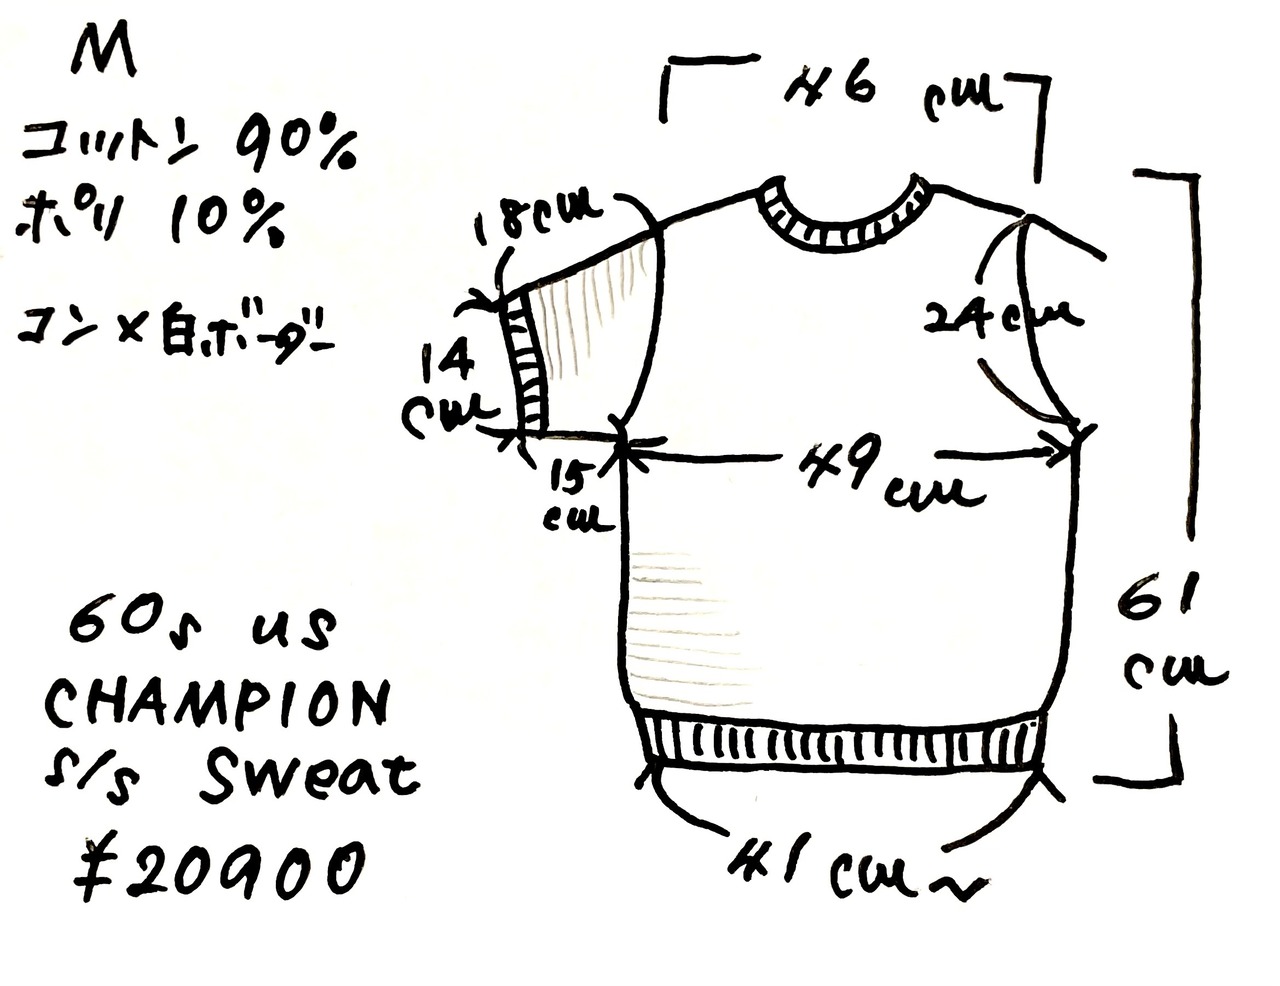 M
コットン 90%
ポリ 10%
コン×白ボーダー
46 cm
18cm
24cm
14
cm
49cm
15
cm
61
cm
60s us
CHAMPION
s/s Sweat
¥20900
41cm~